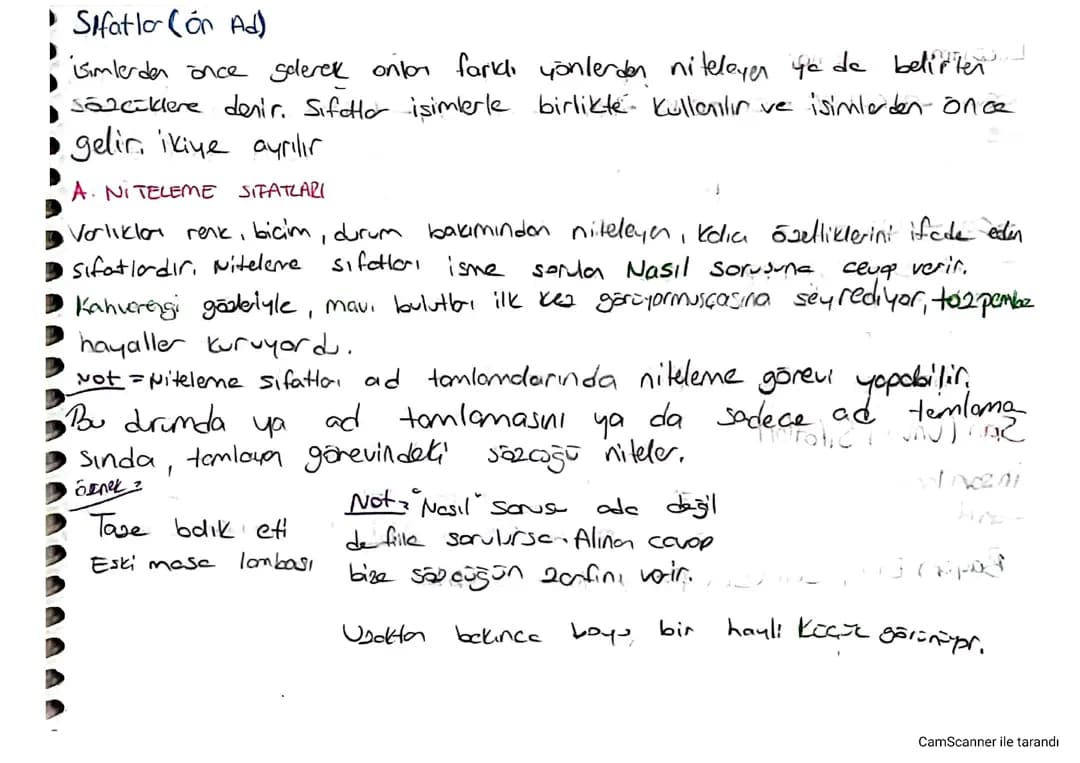 Sıfatlar (ön Ad)
isimlerden önce gelerek onları farklı yönlerden niteleyen ya da belirten
sözcüklere denir. Sıfatlar isimlerle birlikte kullanılır ve isimlerden önce
gelir. ikiye ayrılır
A. NİTELEME SIFATLARI
Varlıkları renk, biçim, durum bakımından niteleyen, kalıcı özelliklerini ifade eden
sıfatlardır. Niteleme sıfatları isme sorulan Nasıl sorusuna cevap verir.
Kahverengi gözleriyle, mavi bulutları ilk kez görüyormuşçasına seyrediyor, tozpembe
hayaller kuruyordu.
Not = Niteleme sıfatları ad tamlamalarında niteleme görevi yapabilir.
Bu durumda ya ad tamlamasını ya da sadece ad tamlama
sında, tamlayan görevindeki sözcüğü niteler.
örnek:
Taze balık eti
Eski masa lambası
Not: "Nasıl" sorusu ada değil
de fiile sorulursa Alınan cevap
bize sözcüğün zarfını verir.
Uzaktan bakınca boyu bir hayli küçük görünüyor.
CamScanner ile tarandı